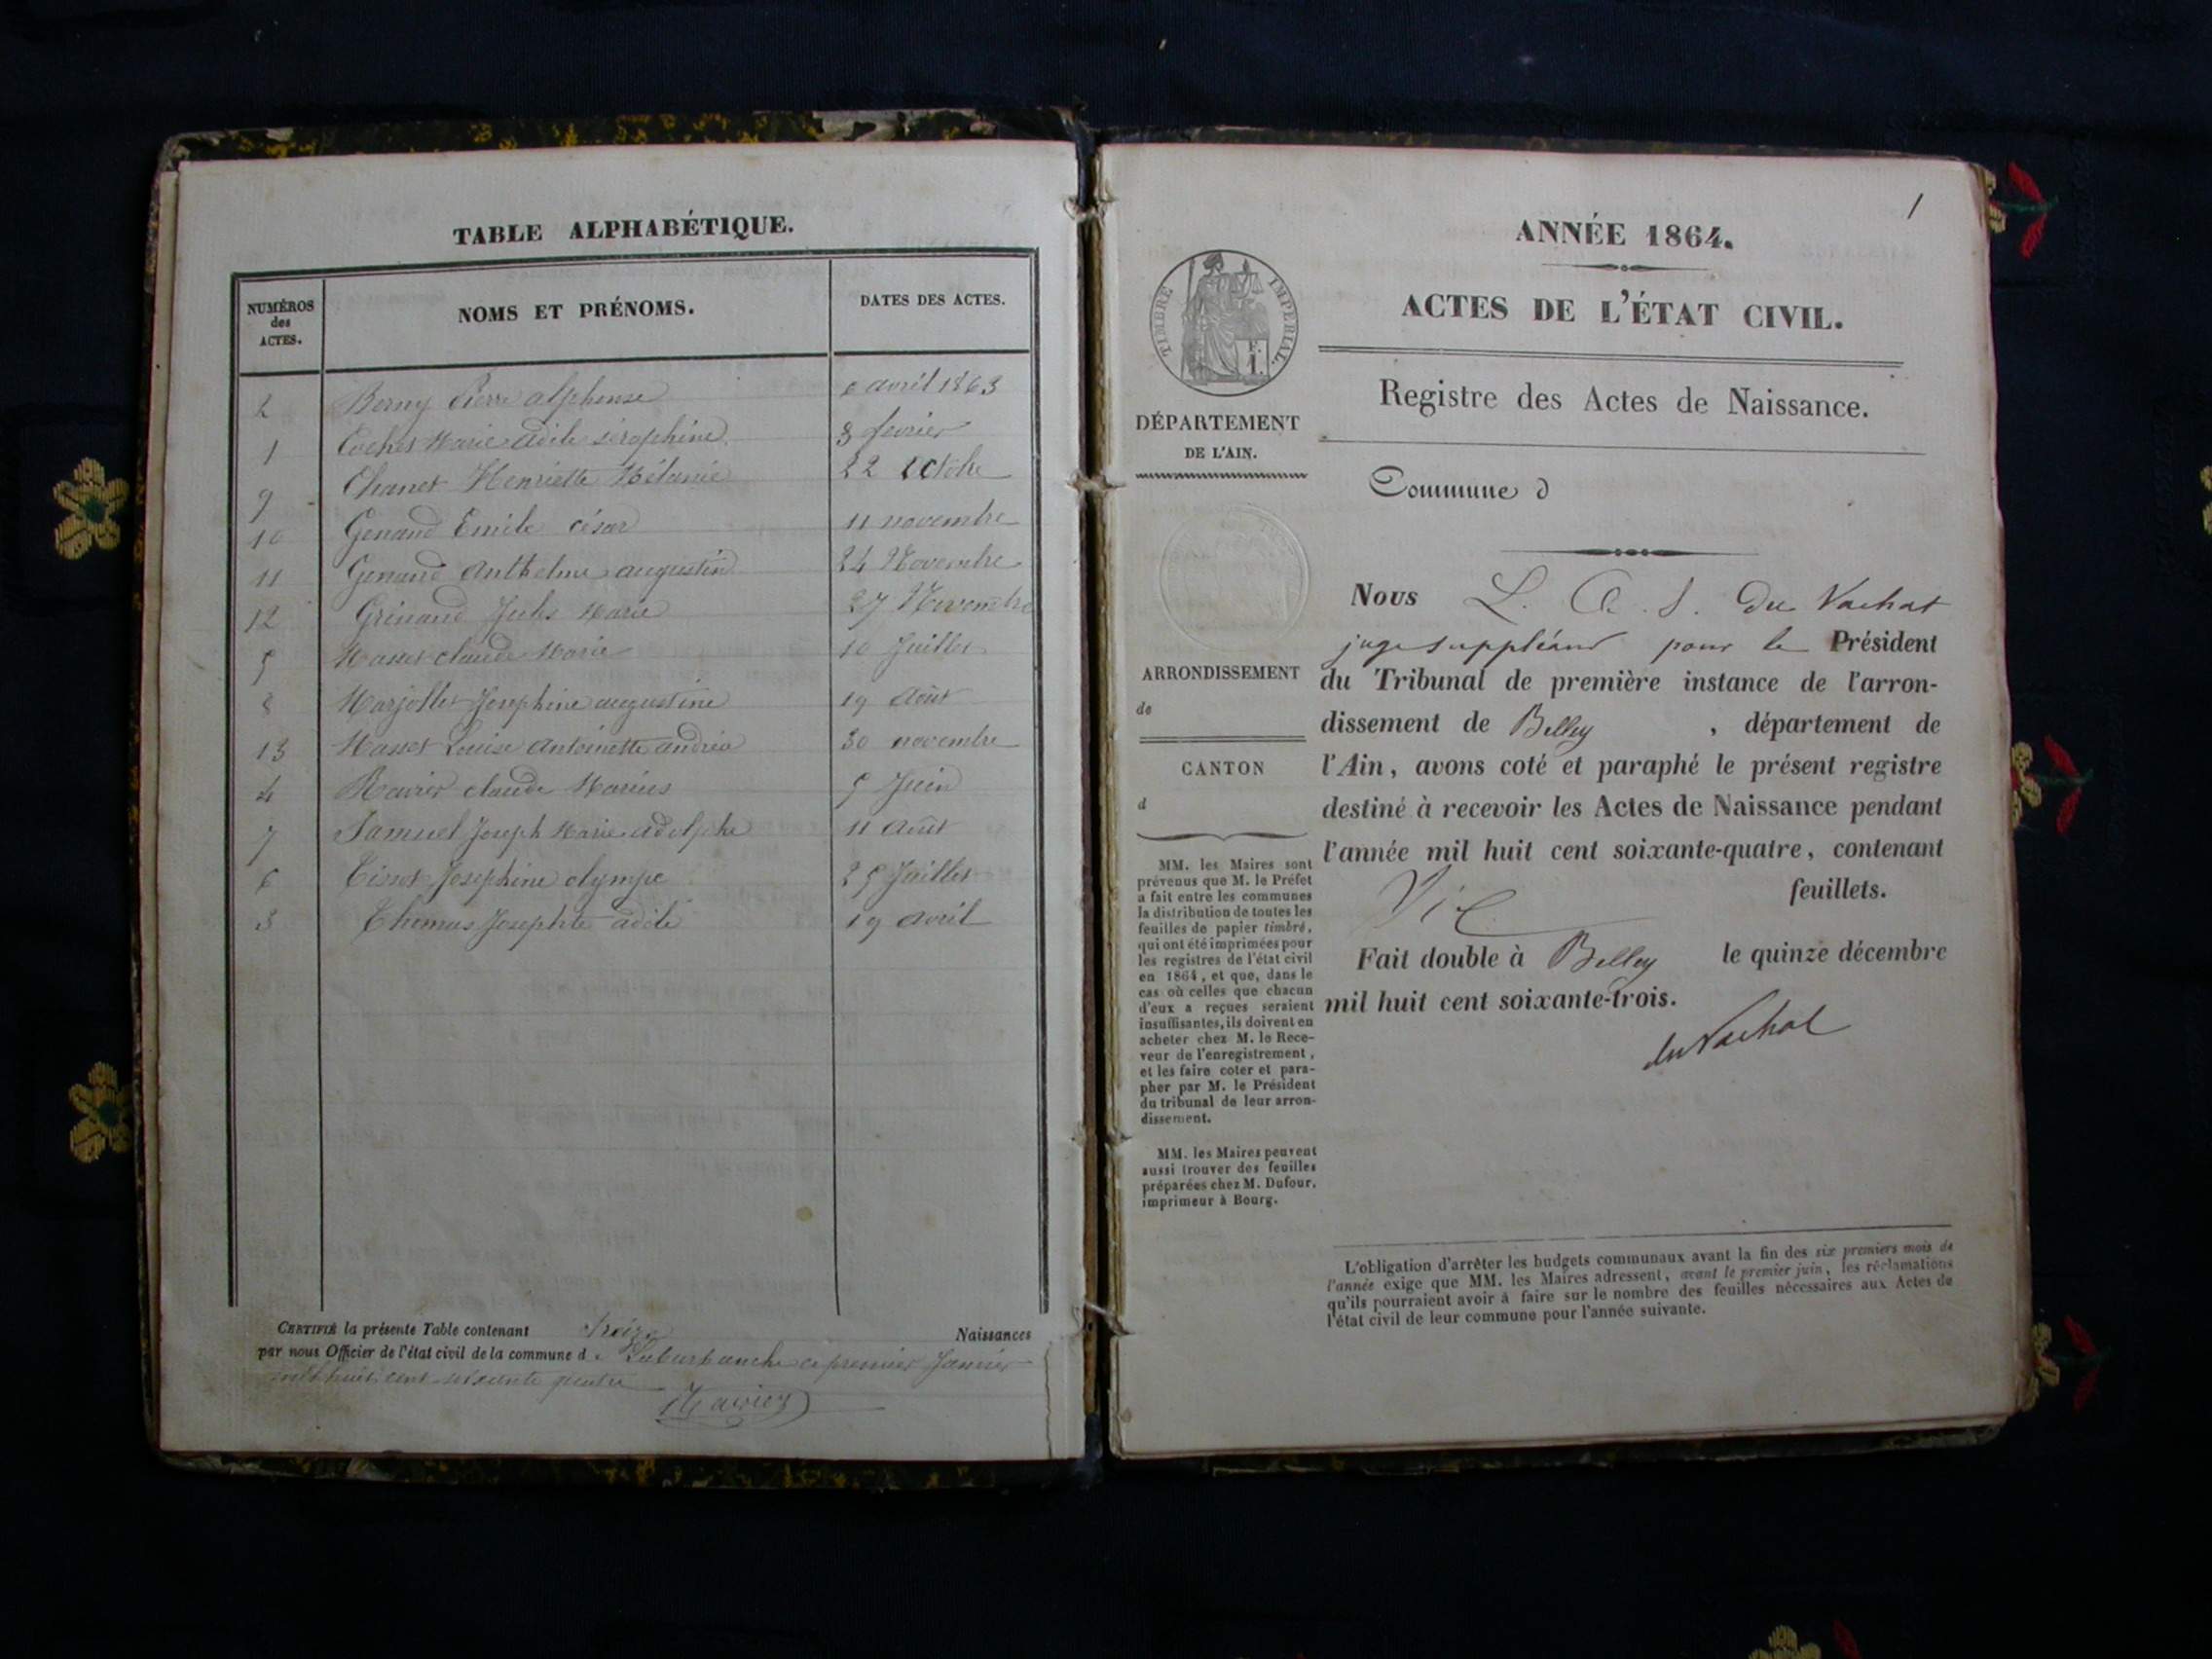 TABLE ALPHABÉTIQUE.
NUMÉROS
des
ACTES.
NOMS ET PRÉNOMS.
DATES DES ACTES.
2 Berny Pierre alphonse 6 avril 1863
1 Cochet Marie adèle séraphine 8 février
9 Chanet Henriette Mélanie 22 octobre
10 Genand Emile césar 11 novembre
11 Genand Anthelme augustin 24 Novembre
12 Grinand Jules Marie 27 Novembre
5 Masset claude Marie 10 Juillet
8 Marjollet Josephine augustine 19 Août
13 Masset Louise Antoinette andréa 30 novembre
4 Ravier claude Marius 5 Juin
7 Samuel Joseph Marie adolphe 11 août
6 Tissot Josephine olympe 25 Juillet
3 Thomas Josephte adèle 19 avril
CERTIFIÉ la présente Table contenant Treize Naissances
par nous Officier de l'état civil de la commune de ce premier Janvier
mil huit cent soixante quatre
1
ANNÉE 1864.
ACTES DE L'ÉTAT CIVIL.
Registre des Actes de Naissance.
TIMBRE IMPÉRIAL.
F.
1.
DÉPARTEMENT
DE L'AIN.
ARRONDISSEMENT
de
CANTON
d
MM. les Maires sont
prévenus que M. le Préfet
a fait entre les communes
la distribution de toutes les
feuilles de papier timbré,
qui ont été imprimées pour
les registres de l'état civil
en 1864, et que, dans le
cas où celles que chacun
d'eux a reçues seraient
insuffisantes, ils doivent en
acheter chez M. le Rece-
veur de l'enregistrement,
et les faire coter et para-
pher par M. le Président
du tribunal de leur arron-
dissement.
MM. les Maires peuvent
aussi trouver des feuilles
préparées chez M. Dufour,
imprimeur à Bourg.
Commune d
Nous L. A. S. Du Vachat
juge suppléant pour le Président
du Tribunal de première instance de l'arron-
dissement de Belley , département de
l'Ain, avons coté et paraphé le présent registre
destiné à recevoir les Actes de Naissance pendant
l'année mil huit cent soixante-quatre, contenant
feuillets.
Fait double à Belley le quinze décembre
mil huit cent soixante-trois.
du Vachat
L'obligation d'arrêter les budgets communaux avant la fin des six premiers mois de
l'année exige que MM. les Maires adressent, avant le premier juin, les réclamations
qu'ils pourraient avoir à faire sur le nombre des feuilles nécessaires aux Actes de
l'état civil de leur commune pour l'année suivante.